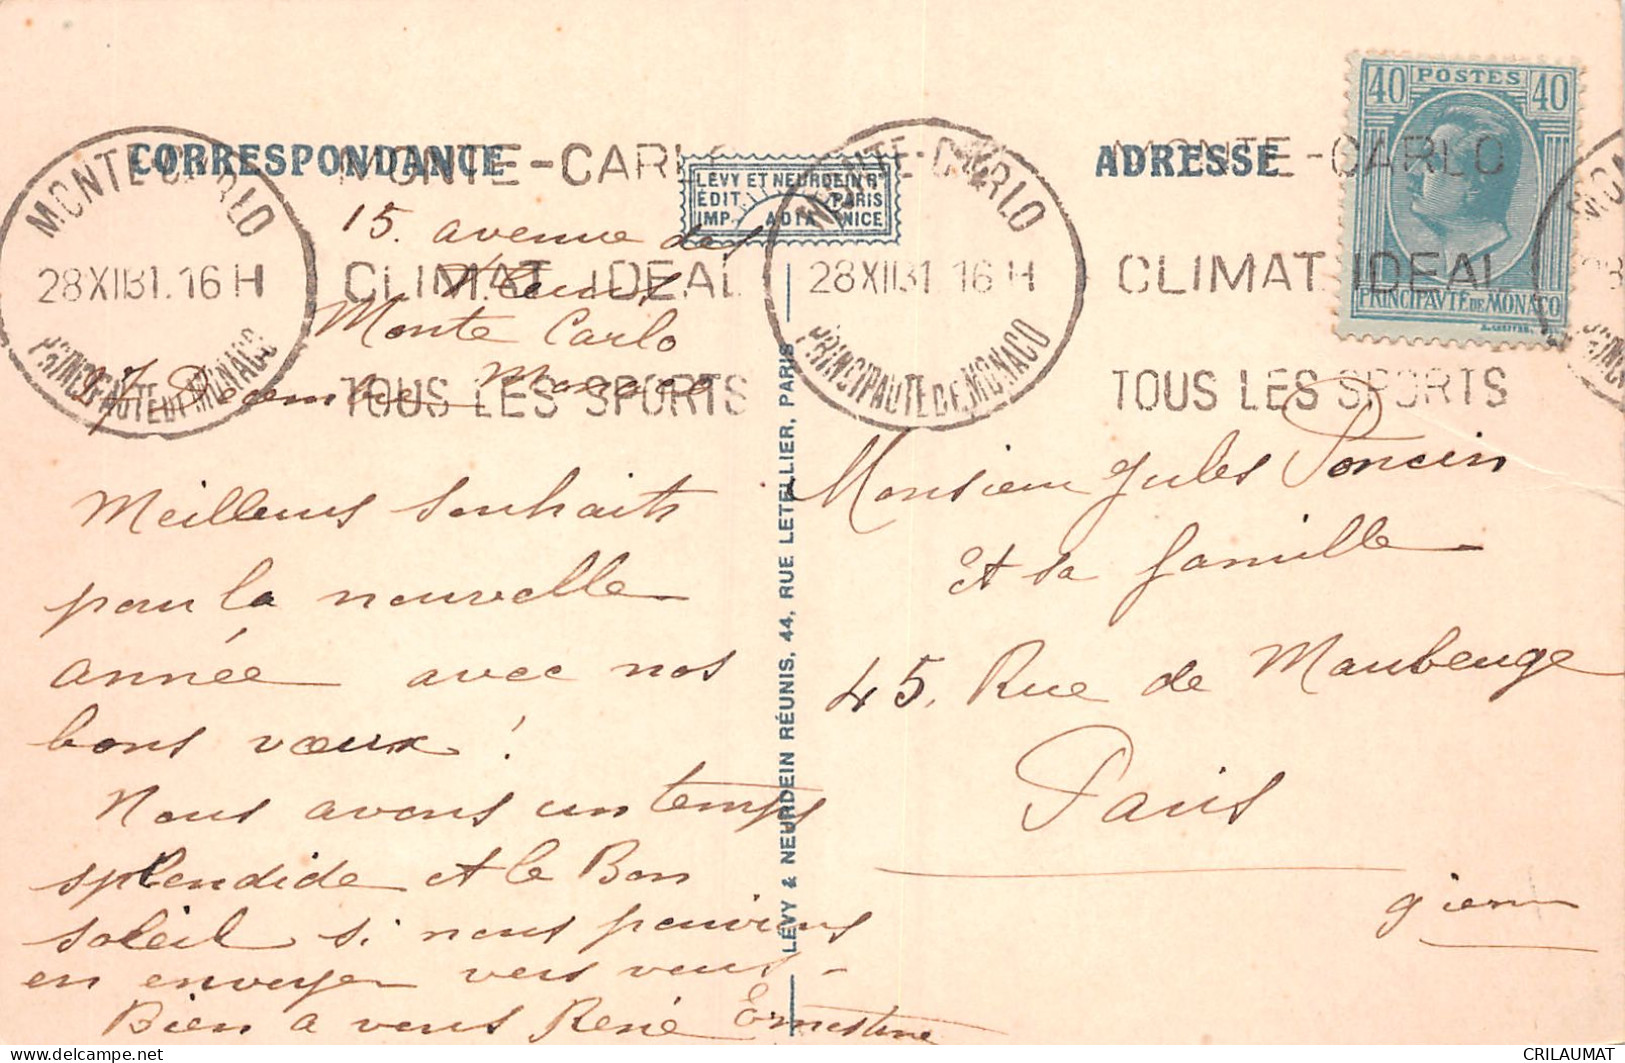 CORRESPONDANCE
ADRESSE
MONTE-CARLO
28 XII 31. 16 H
PRINCIPAUTE DE MONACO
MONTE-CARLO
CLIMAT IDEAL
TOUS LES SPORTS
LÉVY ET NEURDEIN Rs
ÉDIT. PARIS
IMP. ADIA NICE
MONTE-CARLO
28 XII 31. 16 H
PRINCIPAUTE DE MONACO
MONTE-CARLO
CLIMAT IDEAL
TOUS LES SPORTS
40 POSTES 40
PRINCIPAVTE DE MONACO
15. avenue des
Fleurs
Monte Carlo
27 Décembre Monaco
Meilleurs souhaits
pour la nouvelle
année avec nos
bons vœux !
Nous avons un temps
splendide et le Bon
soleil si nous pouvions
en envoyer vers vous -
Bien a vous René Ernestine
LÉVY & NEURDEIN RÉUNIS, 44, RUE LETELLIER, PARIS
Monsieur Jules Poncin
et sa famille
45. Rue de Maubeuge
Paris
CRILAUMAT